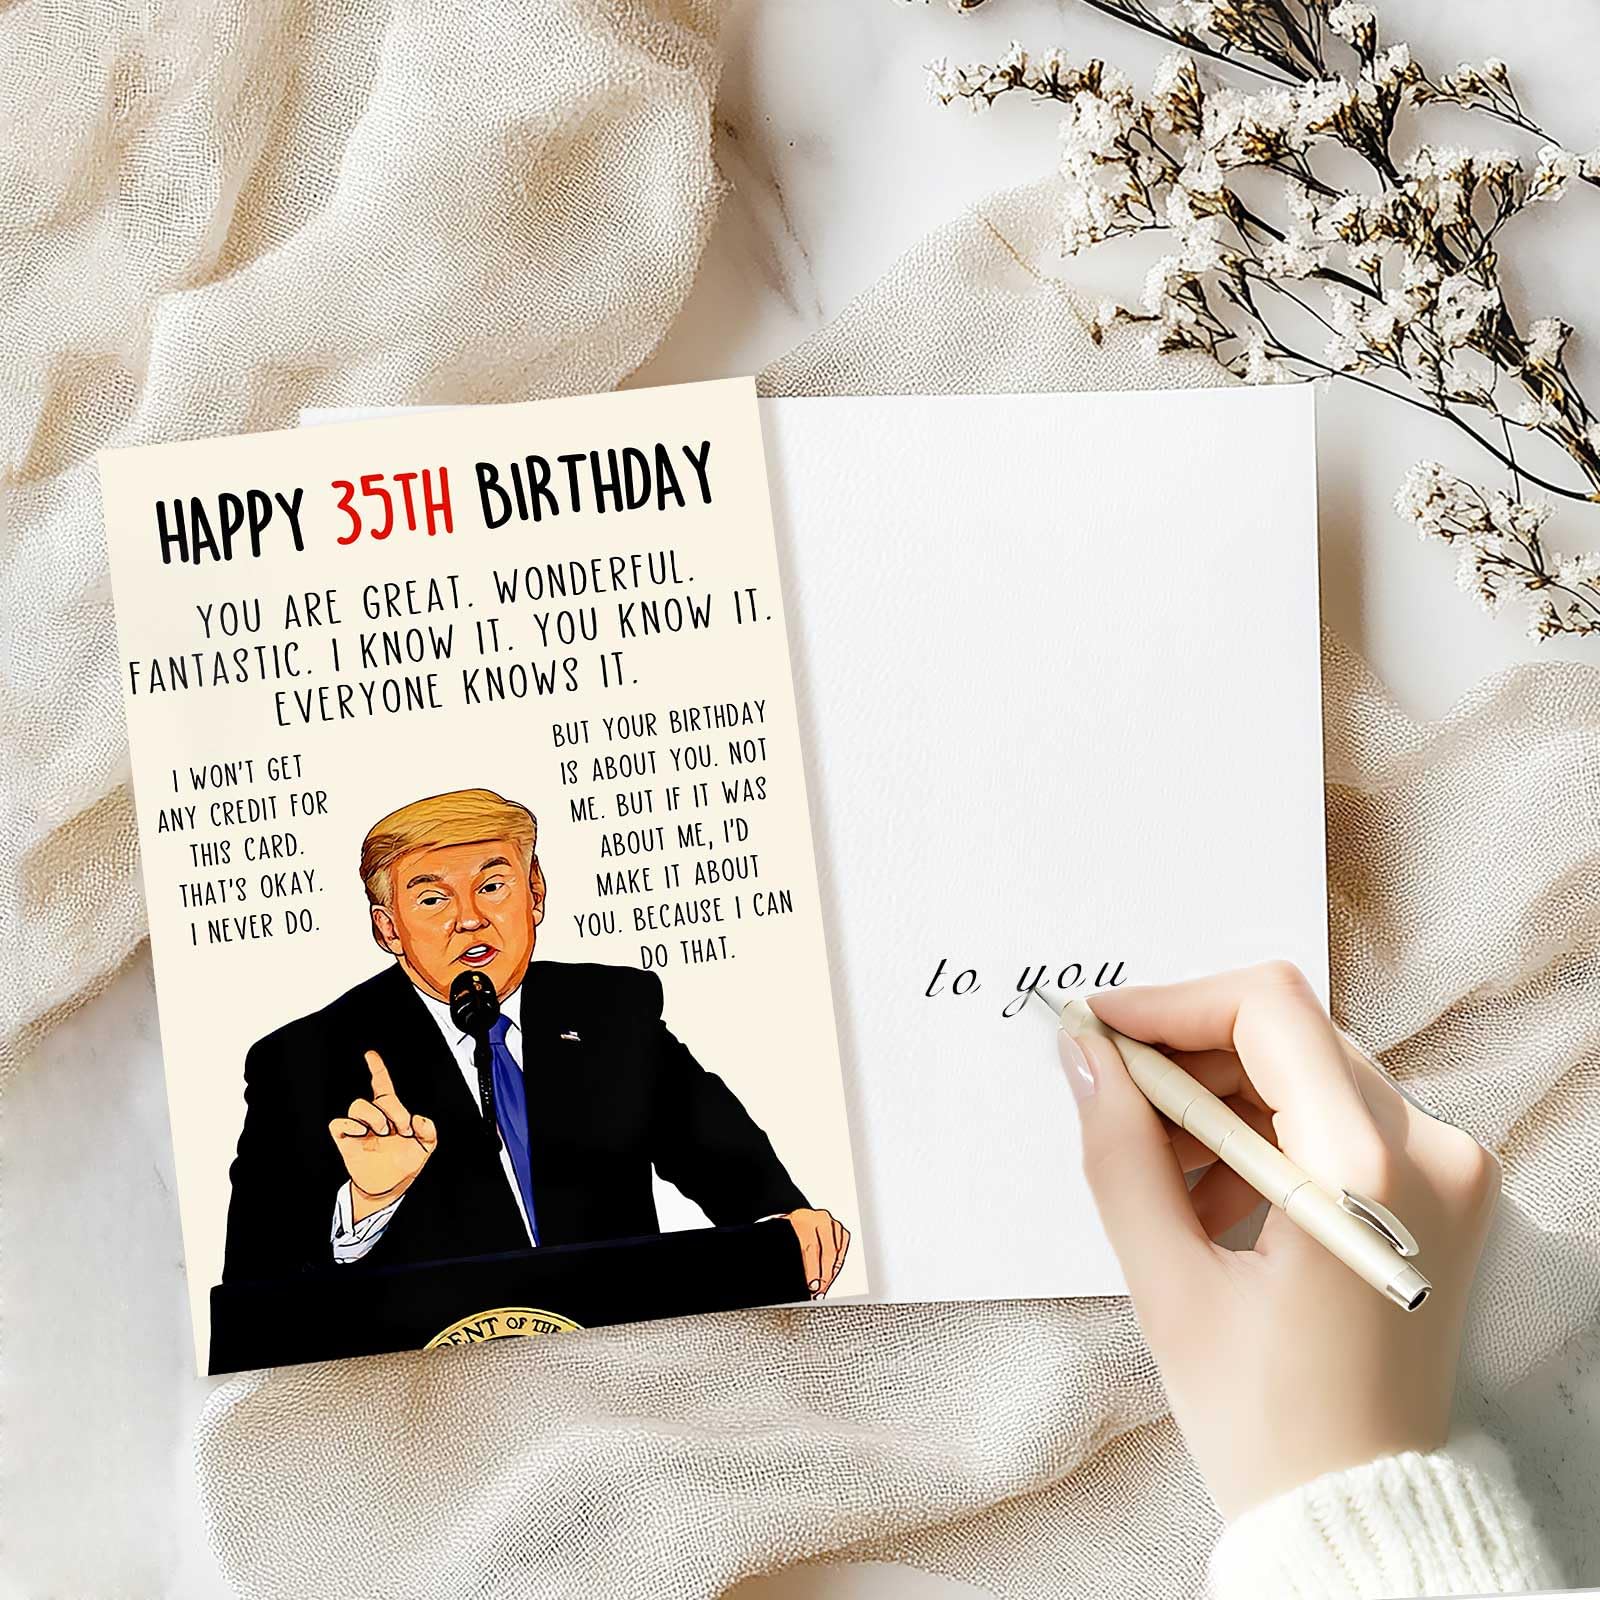 HAPPY 35TH BIRTHDAY
YOU ARE GREAT. WONDERFUL.
FANTASTIC. I KNOW IT. YOU KNOW IT.
EVERYONE KNOWS IT.
I WON'T GET
ANY CREDIT FOR
THIS CARD.
THAT'S OKAY.
I NEVER DO.
BUT YOUR BIRTHDAY
IS ABOUT YOU. NOT
ME. BUT IF IT WAS
ABOUT ME, I'D
MAKE IT ABOUT
YOU. BECAUSE I CAN
DO THAT.
DENT OF THE
to you